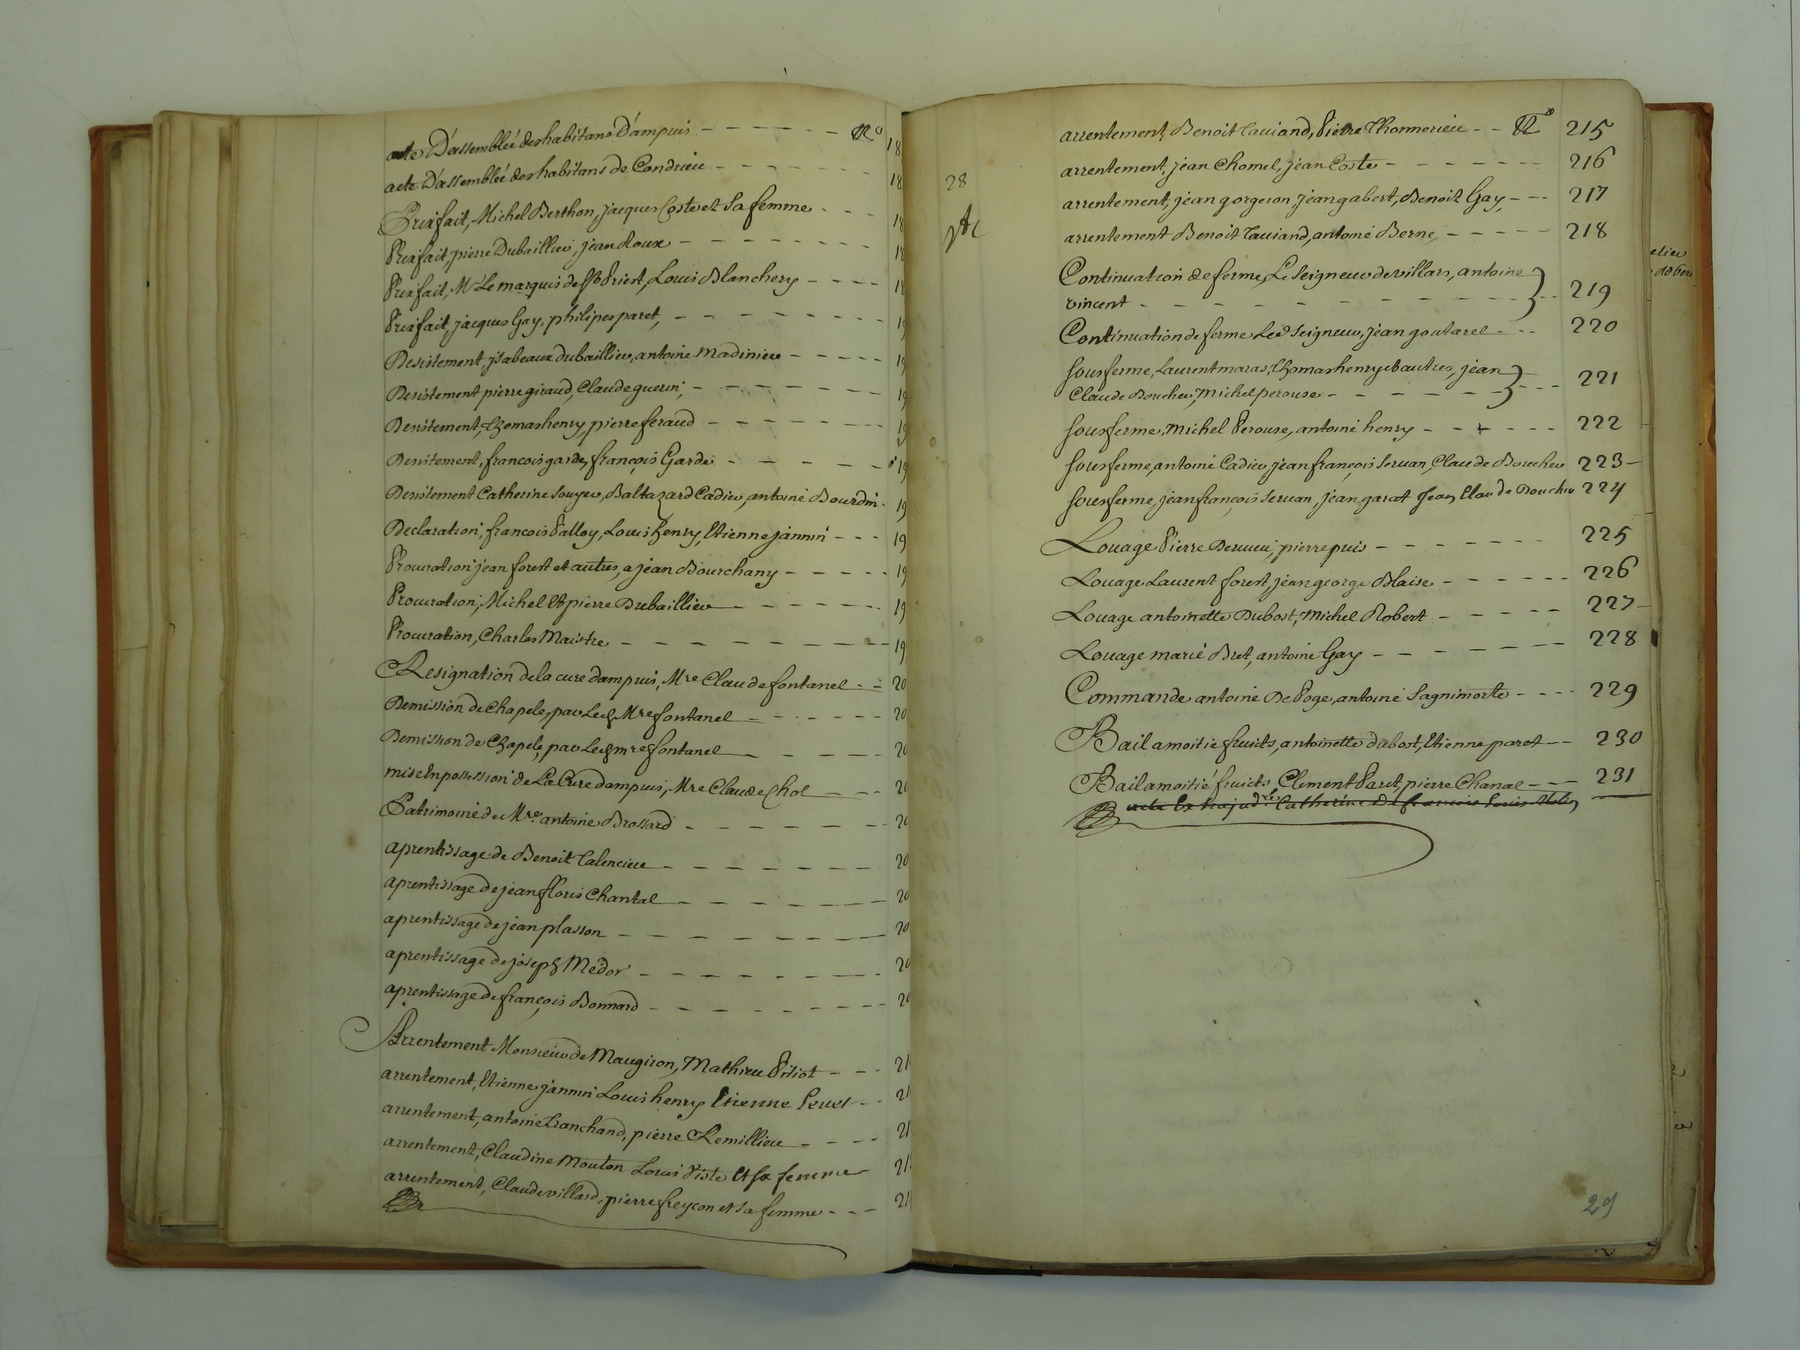 acte D'assemblée des habitans D'ampuis - - - - - - N° 18
acte D'assemblée des habitans de Condrieu - - - - - - 18
Prixfait, Michel Berthon, jacques Coste et sa femme - - - 18
Prixfait, pierre Dubaillieu, jean Roux - - - - - - - - 18
Prixfait, Mr Le marquis de St Priest, Louis Blanchery - - - - 18
Prixfait, jacques Gay, philipes paret, - - - - - - - 19
Desistement, jsabeaux dubaillieu, antoine madinieu - - - - 19
Desistement pierre giraud, Claude guerin, - - - - - - - 19
Desistement, thomas henry, pierre feraud - - - - - - 19
Desistement, francois garde, françois Garde - - - - - 19
Desistement Catherine Louyeu, Baltazard Cadieu, antoine Bourdin - 19
Declaration, francois Palloy, Louis henry, Etienne jannin - - - 19
Procuration jean forest et autres, a jean Bourchany - - - - - 19
Procuration, Michel Et pierre Dubaillieu - - - - - - 19
Procuration, Charles Maistre - - - - - - - - 19
Resignation de la cure dampuis, Mre Claude fontanel - - 20
Demission de Chapele, par Led Mre fontanel - - - - - - 20
Demission de Chapele, par Led mre fontanel - - - - 20
mise En possession de La Cure dampuis, Mre Claude Chol - - - 20
Patrimoine de Mre antoine Brossard - - - - - - 20
aprentissage de Benoit Valencieu - - - - - - - 20
aprentissage de jean floris Chantal - - - - - - 20
aprentissage de jean plasson - - - - - - 20
aprentissage de joseph Medor - - - - - - - 20
aprentissage de françois Bonnard - - - - - - - 20
Arrentement Monsieur de Maugiron, Mathieu Pitiot - - - 21
arrentement, Etienne jannin Louis henry Etienne - - 21
arrentement, antoine Franchand, pierre Remillieu - - - - 21
arrentement, Claudine Mouton Louis Viste Et sa femme 21
arrentement, Claude villard, pierre freycon et sa femme - - - 21
28
arrentement, Benoit Taviand, Pierre Thonnerieu - - N° 215
arrentement, jean Chomel, jean Coste - - - - - - - 216
arrentement, jean gorgeron, jean gabert, Benoit Gay, - - - 217
arrentement Benoit Taviand, antoine Berne, - - - - - 218
Continuation de ferme, Le Seigneur de villars, antoine
vincent - - - - - - - - - - - 219
Continuation de ferme Led Seigneur, jean goutarel - - - 220
sousferme, Laurent maras, thomas henry et autres, jean
Claude Boucher, Michel perouse - - - - - - - - 221
sousferme, Michel Perouse, antoine henry - - + - - - 222
sousferme, antoine Cadieu, jean françois Servan, Claude Boucher 223-
sousferme, jean françois Servan, jean garat Jean Claude Boucher 224
Louage Pierre, pierre puis - - - - - - - 225
Louage Laurent forest, jean george Blaise - - - - - - 226
Louage antoinette Dubost, Michel Robert - - - - - 227-
Louage marie Bret, antoine Gay - - - - - - - 228
Commande antoine De Poge, antoine Sagnimorte - - - - 229
Bail a moitie fruits, antoinette dubost, Etienne paret - - 230
Bail a moitié fruicts, Clement Paret, pierre Chanal - - - 231
acte Catherine françois Louis
29